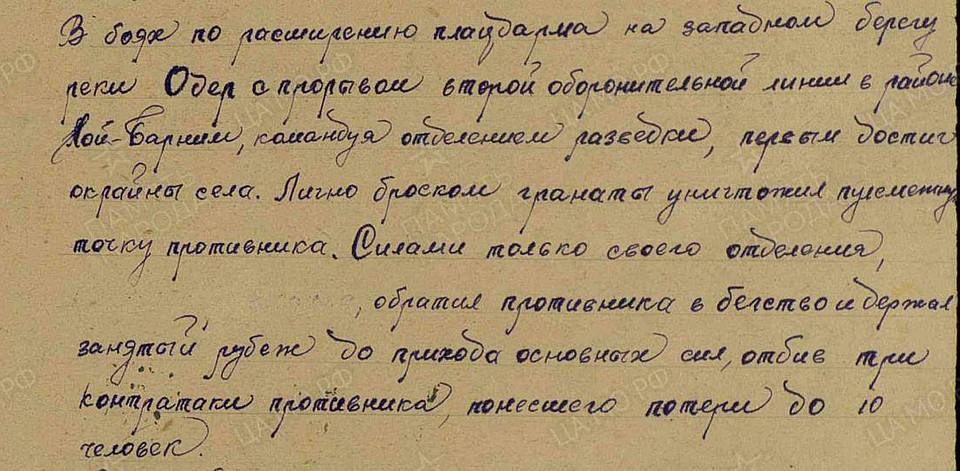 В боях по расширению плацдарма на западном берегу
реки Одер с прорывом второй оборонительной линии в районе
Ной-Барним, командуя отделением разведки, первым достиг
окрайны села. Лично броском гранаты уничтожил пулеметную
точку противника. Силами только своего отделения,
, обратил противника в бегство и держал
занятый рубеж до прихода основных сил, отбив три
контратаки противника, понесшего потери до 10
человек.